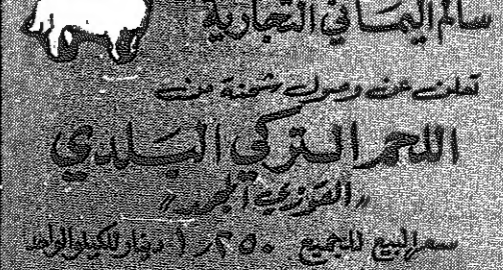 سالم اليماني التجارية
تعلن عن وصول شحنة من
اللحم التركي البلدي
"الفوزي المجمد"
سعر البيع للجميع ١٫٢٥٠ دينار للكيلو الواحد